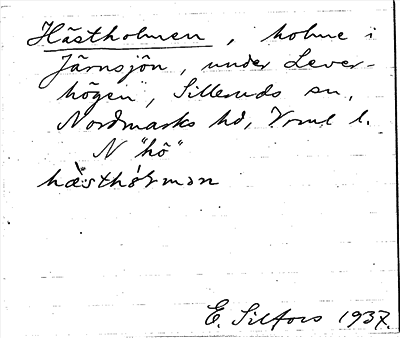 Hästholmen, holme i
Järnsjön, under Lever-
högen, Silleruds sn,
Nordmarks hd, Vrml l.
N "hö"
hæ̀sthòɽmən
E. Silfors 1937.